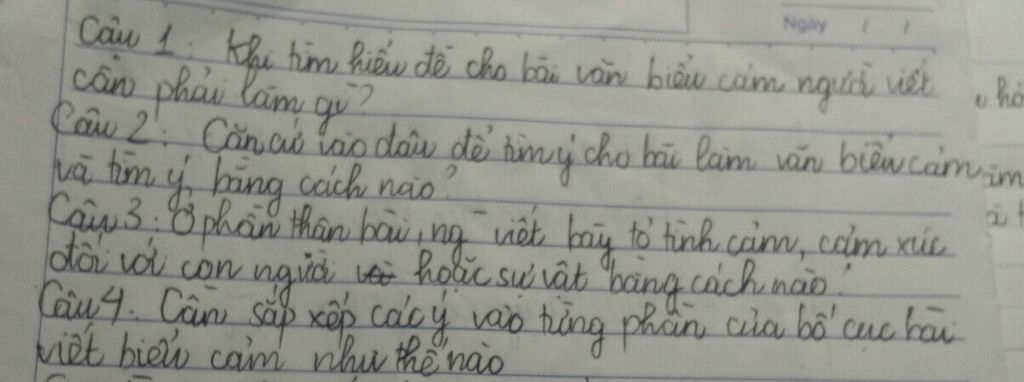 Ngày / /
Câu 1: Khi tìm hiểu đề cho bài văn biểu cảm người viết
cần phải làm gì?
Câu 2: Căn cứ vào đâu để tìm ý cho bài làm văn biểu cảm
và tìm ý bằng cách nào?
Câu 3: Ở phần thân bài, ng viết bày tỏ tình cảm, cảm xúc
đối với con người hoặc sự vật bằng cách nào?
Câu 4. Cần sắp xếp các ý vào từng phần của bố cục bài
viết biểu cảm như thế nào